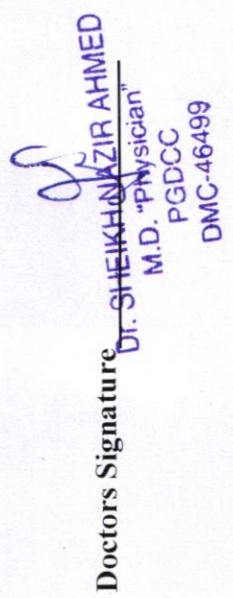 Doctors Signature
Dr. SHEIKH NAZIR AHMED
M.D. "Physician"
PGDCC
DMC-46499